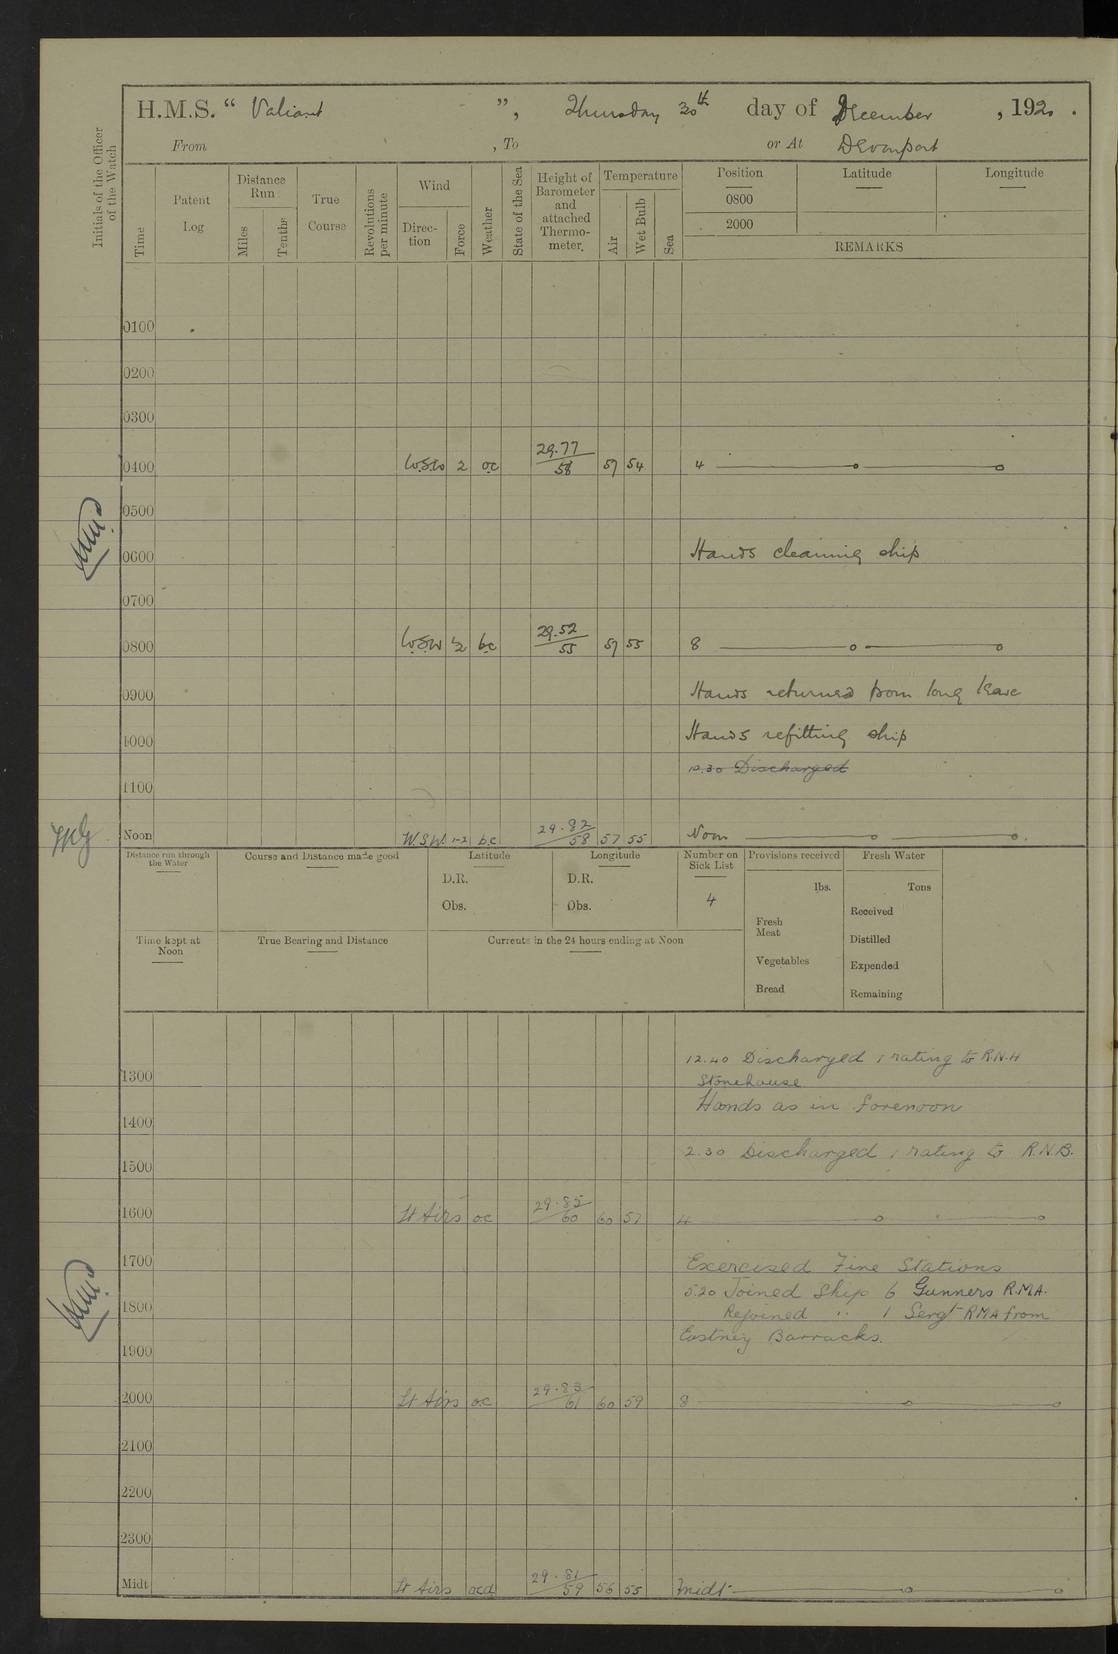 H.M.S. “ Valiant ”, Thursday 30th day of December, 1920.
From , To or At Devonport
Initials of the Officer of the Watch
Time
Patent Log
Distance Run
Miles
Tenths
True Course
Revolutions per minute
Wind
Direction
Force
Weather
State of the Sea
Height of Barometer and attached Thermometer.
Temperature
Air
Wet Bulb
Sea
Position Latitude Longitude
0800
2000
REMARKS
0100
0200
0300
0400 W.S.W 2 o.c 29.77/58 57 54 4
0500
0600 Hands cleaning ship
0700
0800 W.S.W ½ b.c 29.52/55 57 55 8
0900 Hands returned from long leave
1000 Hands refitting ship
10.30 Discharged
1100
Noon W.S.W. 1-2 b.c 29.82/58 57 55 Noon
Distance run through the Water
Course and Distance made good
Latitude
D.R.
Obs.
Longitude
D.R.
Obs.
Number on Sick List
4
Provisions received
lbs.
Fresh Meat
Vegetables
Bread
Fresh Water
Tons
Received
Distilled
Expended
Remaining
Time kept at Noon
True Bearing and Distance
Currents in the 24 hours ending at Noon
12.40 Discharged 1 rating to R.N.H
1300 Stonehouse
Hands as in forenoon
1400
2.30 Discharged 1 rating to R.N.B.
1500
1600 Lt Airs o.c 29.85/60 60 57 4
1700 Exercised Fire Stations
5.20 Joined Ship 6 Gunners R.M.A.
1800 Rejoined " 1 Sergt RMA from
Eastney Barracks.
1900
2000 Lt Airs o.c 29.83/61 60 59 8
2100
2200
2300
Midt Lt Airs ocd 29.81/59 56 55 Midt